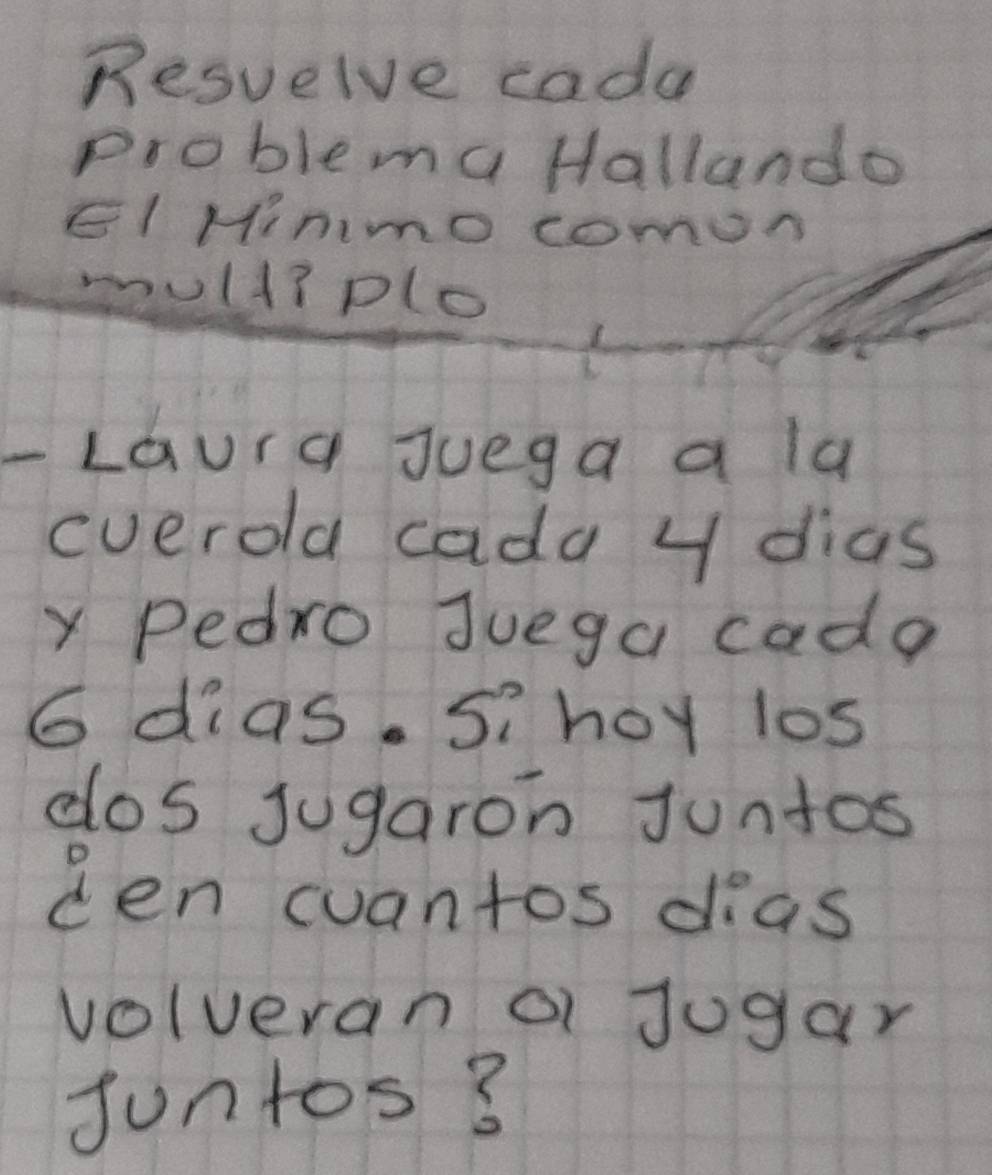 Resuelve cada
problema Hallando
El Minimo comun
multiplo
- Laura Juega a la
cuerda cada 4 dias
y pedro Juega cada
6 dias. Si hoy los
dos Jugarón Juntos
¿en cuantos dias
volveran a Jugar
Juntos?